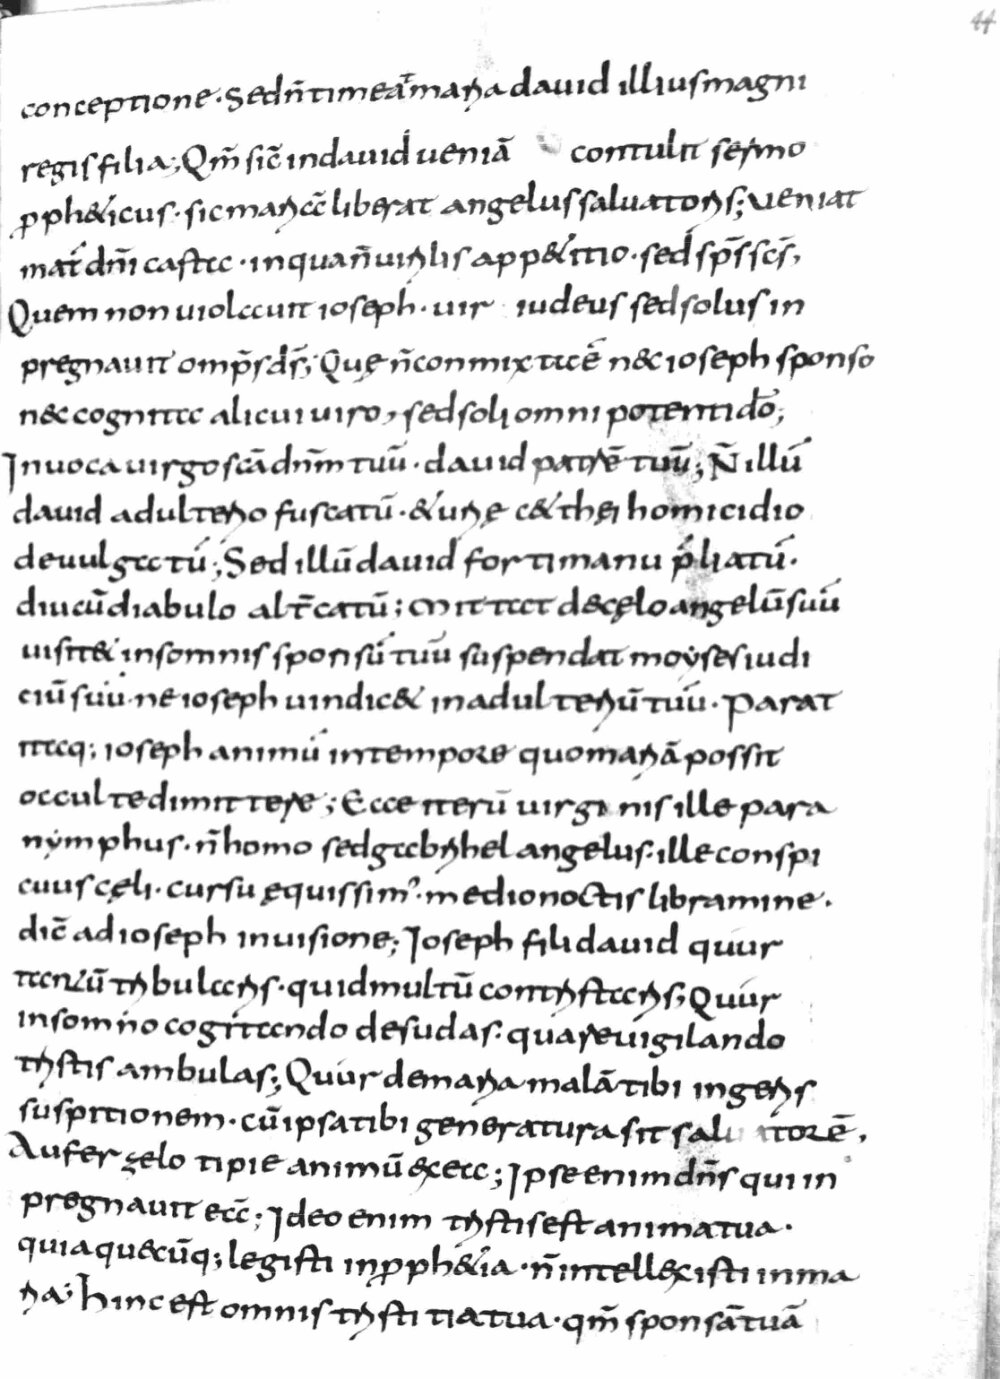 44
conceptione · Sed n̄ timeat̄ maria dauid illius magni
regis filia; Qm̄ sic̄ in dauid ueniā contulit sermo
ꝓph&icus · sic mariā liberat angelus saluatoris; ueniat
mat̄ dn̄i casta · in qua n̄ uirilis app&itio · sed sp̄s sc̄s,
Quem non uiolauit ioseph · uir iudeus sed solus in
pregnauit omp̄s ds̄; Quę n̄ conmixta ē n&c ioseph sponso
n&c cognita alicui uiro, sed soli omnipotenti dō;
Inuoca uirgo scā dn̄m tuū · dauid patrē tuū; N̄ illū
dauid adulterio fuscatū · & urię c&thęi homicidio
deuulgatū; Sed illū dauid forti manu p̄liatū ·
diu cū diabulo alt̄catū; Mittat de cęlo angelū suū
uisit& in somnis sponsū tuū suspendat moẏses iudi
ciū suū · ne ioseph uindic& in adulteriū tuū · Parat
itaq; ioseph animū in tempore quo mariā possit
occulte dimittere; Ecce iterū uirginis ille para
nẏmphus · n̄ homo sed gabrihel angelus · ille conspi
cuus cęli · cursu ęquissim᾿ · medio noctis libramine ·
dic̄ ad ioseph in uisione; Ioseph fili dauid quur
tantū tribularis · quid multū contristaris; Quur
in somno cogitando desudas · quare uigilando
tristis ambulas; Quur de maria malā tibi ingeris
suspitionem · cū ipsa tibi generatura sit saluatorē,
Aufer zelo tipie animū ex ea; Ipse enim dn̄s qui in
pregnauit eā; Ideo enim tristis est anima tua ·
quia quęcūq; legisti in ꝓph&ia · n̄ intellexisti in ma
ria · Hinc est omnis tristitia tua · qm̄ sponsā tuā